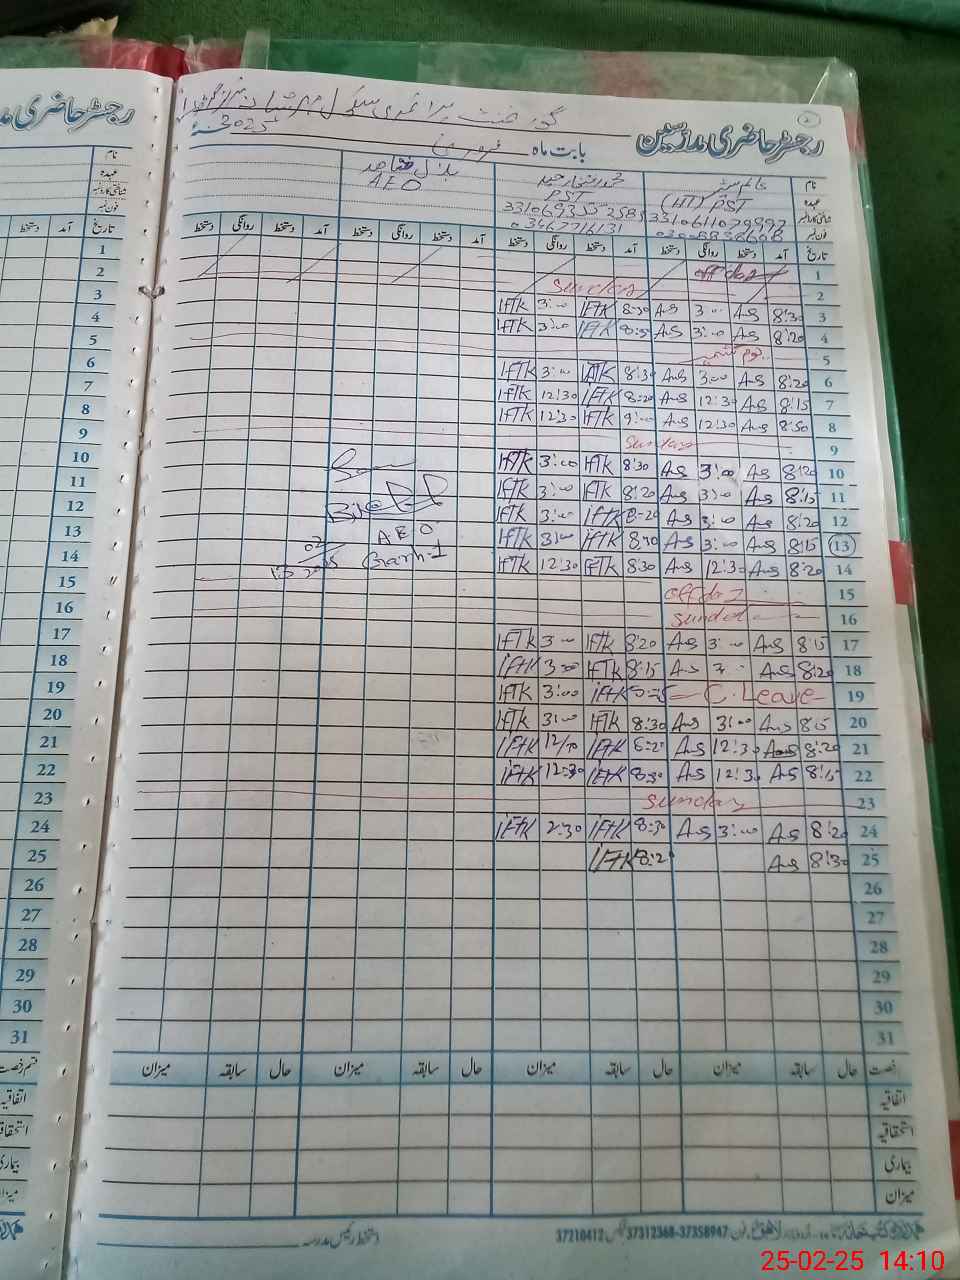 رجسٹر حاضری مدرسین
گورنمنٹ پرائمری سکول
بابت ماہ فروری 2025
نام
عہدہ
شناختی کارڈ نمبر
فون نمبر
(HT) PST
3310611079897
محمد افتخار حیدر
PST
03467716131
بلال
AEO
تاریخ آمد دستخط روانگی دستخط آمد دستخط روانگی دستخط آمد دستخط روانگی دستخط آمد دستخط روانگی دستخط
1 off day
2 Sunday
3 8:30 A-S 3:00 A-S 8:30 IFTK 3:00 IFTK
4 8:20 A-S 3:00 A-S IFTK 3:00 IFTK
5 یوم کشمیر
6 8:20 A-S 3:00 A-S 8:30 IFTK 3:00 IFTK
7 8:15 A-S 12:30 A-S 8:20 IFTK 12:30 IFTK
8 8:50 A-S 12:30 A-S 9:00 IFTK 12:30 IFTK
9 Sunday
10 8:20 A-S 3:00 A-S 8:30 IFTK 3:00 IFTK
11 8:15 A-S 3:00 A-S 8:20 IFTK 3:00 IFTK
12 8:20 A-S 3:00 A-S 8:20 IFTK 3:00 IFTK
13 8:15 A-S 3:00 A-S 8:30 IFTK 3:00 IFTK
14 8:20 A-S 12:30 A-S 8:30 IFTK 12:30 IFTK
AEO
Garh-1
13/02/2025
15 off day
16 Sunday
17 8:15 A-S 3:00 A-S 8:20 IFTK 3:00 IFTK
18 8:20 A-S A-S 8:15 IFTK 3:00 IFTK
19 C. Leave IFTK 3:00 IFTK
20 8:15 A-S 3:00 A-S 8:30 IFTK 3:00 IFTK
21 8:20 A-S 12:30 A-S IFTK IFTK
22 8:15 A-S 12:30 A-S 8:30 IFTK 12:30 IFTK
23 Sunday
24 8:20 A-S 3:00 A-S 8:30 IFTK 2:30 IFTK
25 8:30 A-S IFTK
26
27
28
29
30
31
رخصت حال سابقہ میزان حال سابقہ میزان حال سابقہ میزان حال سابقہ میزان
اتفاقیہ
استحقاقیہ
بیماری
میزان
دستخط رئیس مدرسہ
37312368-37358947
37210412
رجسٹر حاضری مد
نام
عہدہ
شناختی کارڈ نمبر
فون نمبر
تاریخ آمد دستخط
1
2
3
4
5
6
7
8
9
10
11
12
13
14
15
16
17
18
19
20
21
22
23
24
25
26
27
28
29
30
31
قسم رخصت
اتفاقیہ
استحقاقیہ
بیماری
میزان
25-02-25 14:10